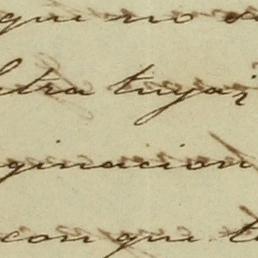 que no
letra tuya;
ginacion
con que